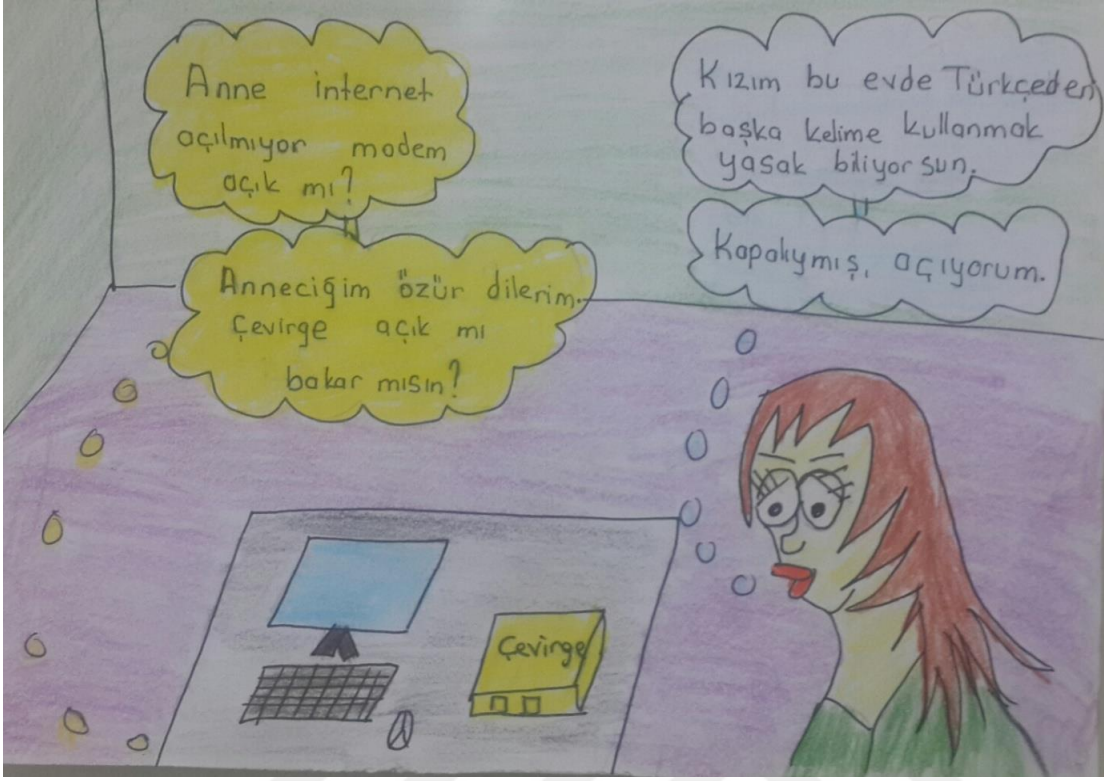 Anne internet
açılmıyor modem
açık mı?
Kızım bu evde Türkçeden
başka kelime kullanmak
yasak biliyorsun.
Anneciğim özür dilerim.
Çevirge açık mı
bakar mısın?
Kapalıymış, açıyorum.
Çevirge